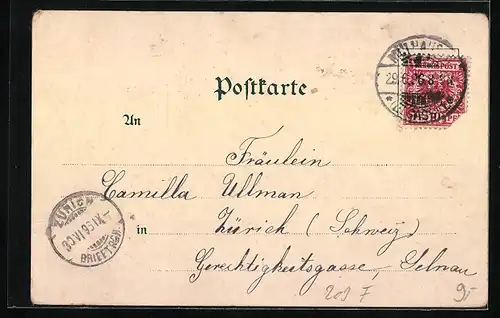 Postkarte
An
Fräulein
Camilla Ullman
in Zürich (Schweiz)
Gerechtigkeitsgasse, Selnau
9.-
ZÜRICH
30 VI 95 IX-
BRIEFTRGR.